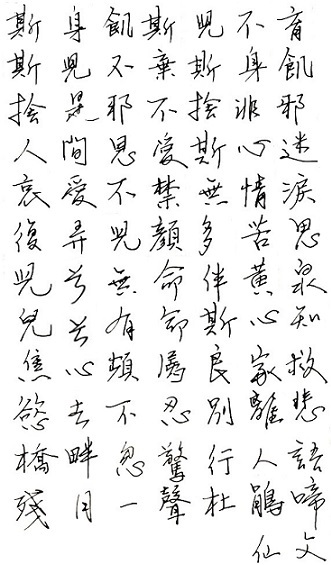 斯身飢斯兒不育
斯兒不棄斯身飢
捨是邪不捨非邪
人間恩愛斯心迷
哀愛不禁無情淚
復弄兒顏多苦思
兒兮無命伴黃泉
兒兮有命斯心知
焦心頻為良家救
慾去不忍別離悲
橋畔忽驚行人語
殘月一聲杜鵑啼
仙文